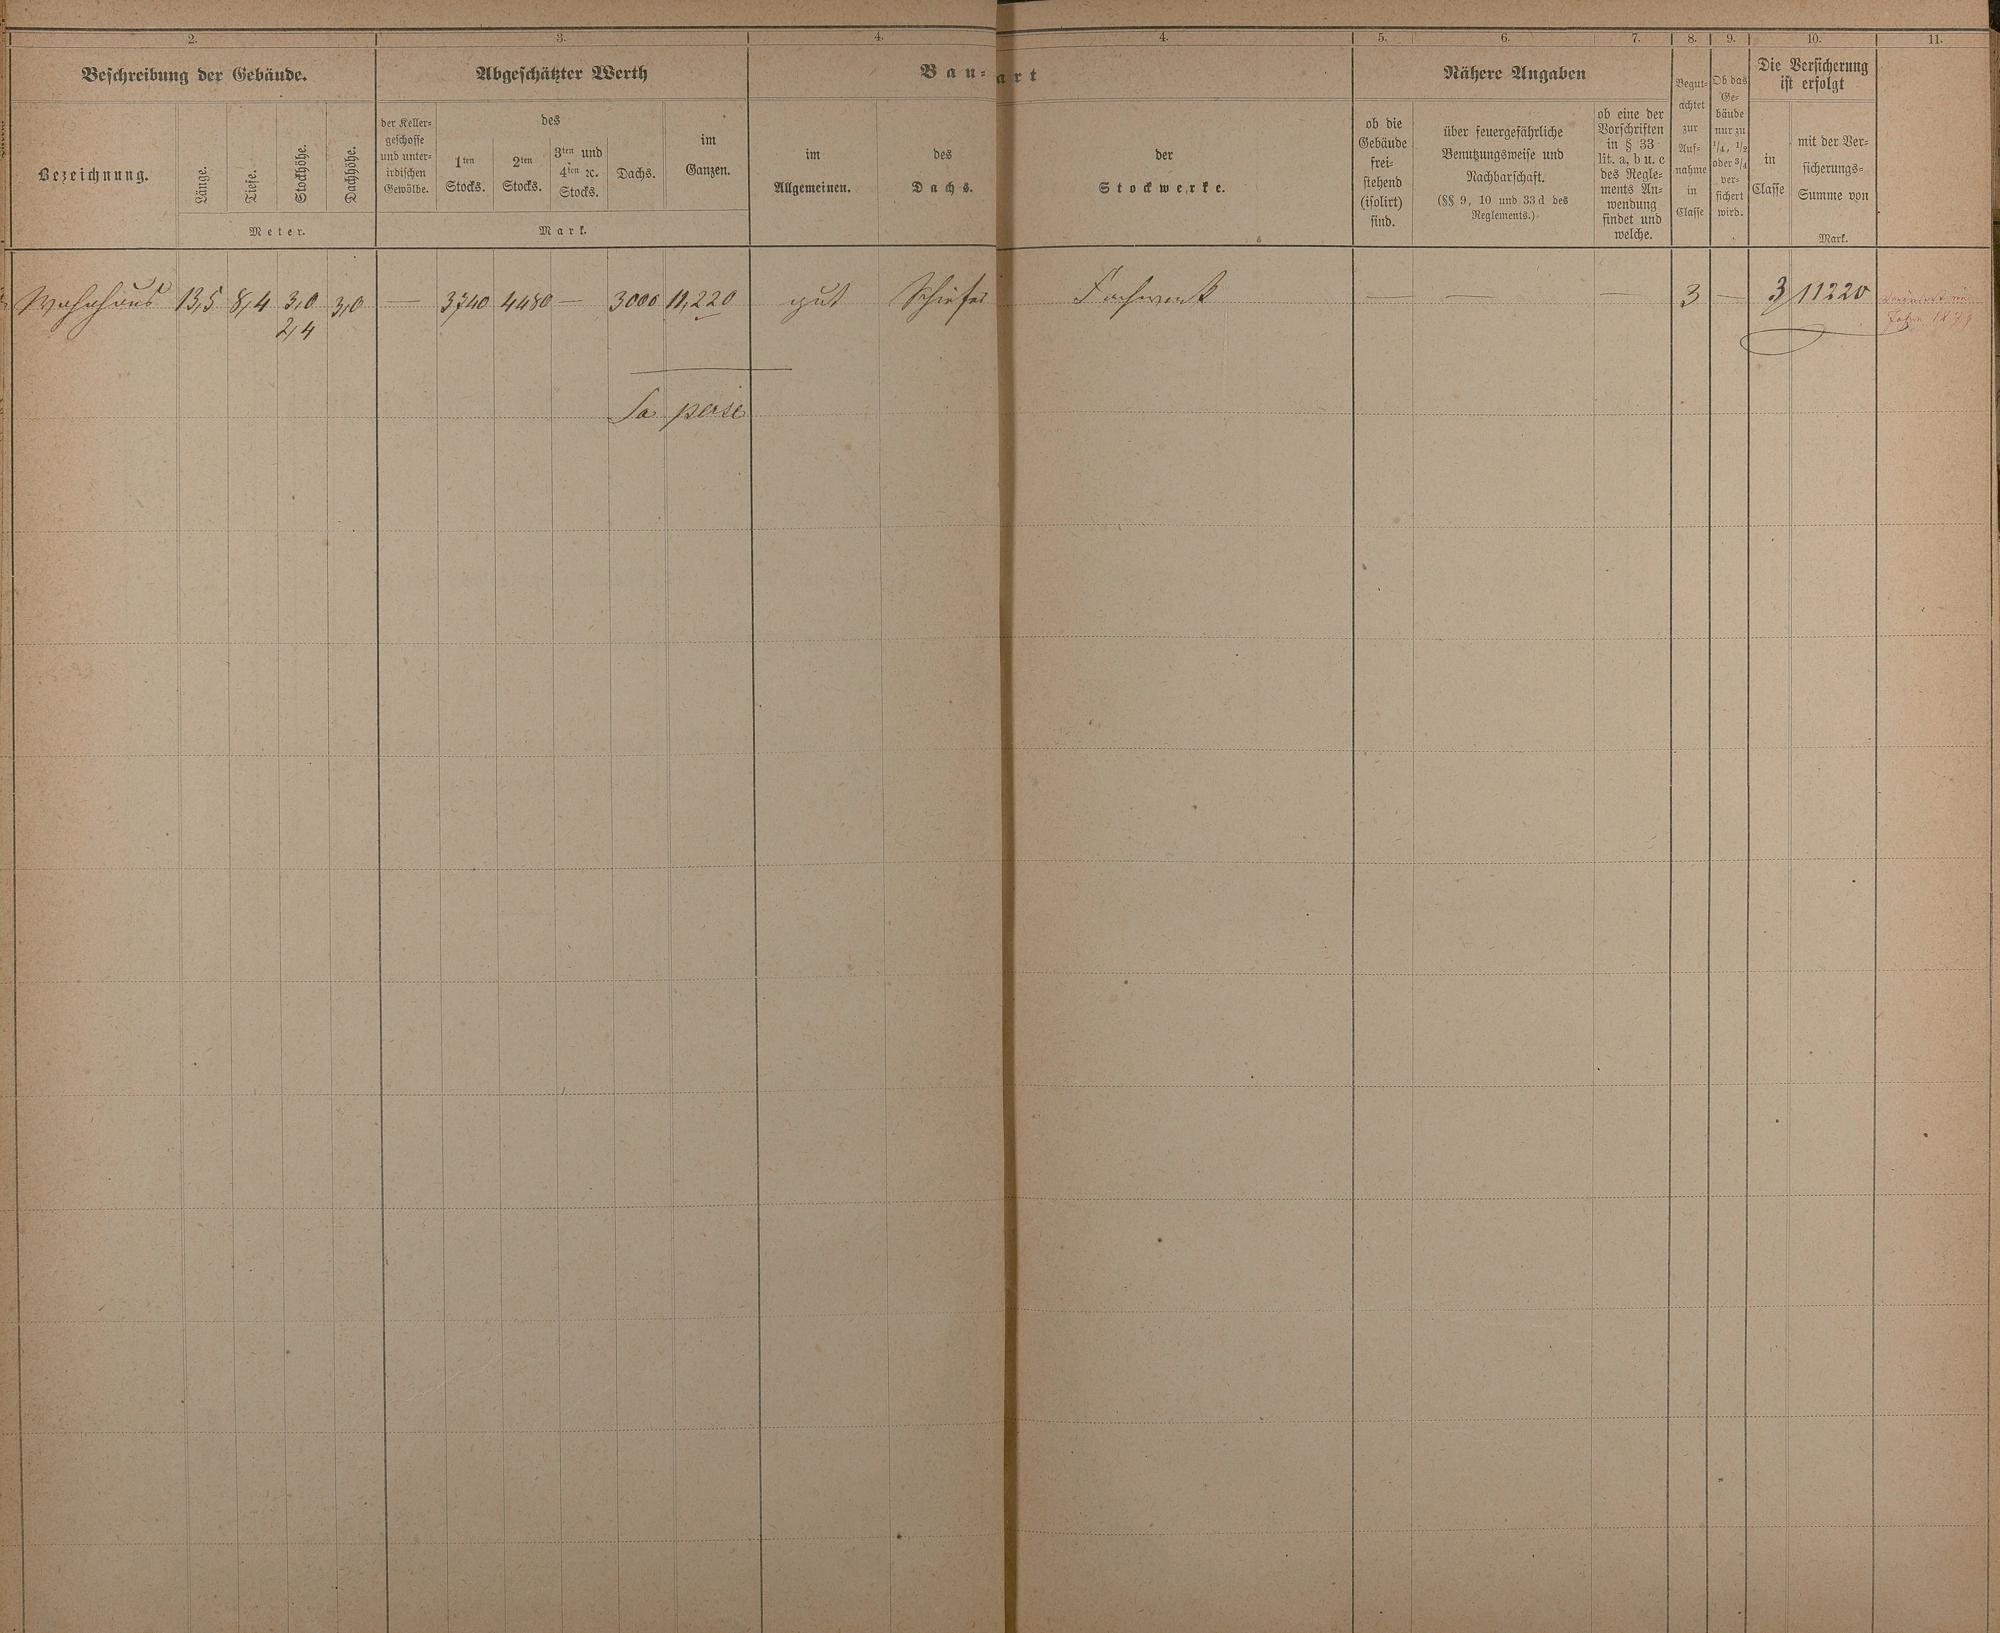 2.
3.
4.
4.
5.
6.
7.
8.
9.
10.
11.
Beschreibung der Gebäude.
Bezeichnung.
Länge.
Tiefe.
Stockhöhe.
Dachhöhe.
Meter.
Abgeschätzter Werth
der Keller-
geschosse
und unter-
irdischen
Gewölbe.
des
1ten
Stocks.
2ten
Stocks.
3ten und
4ten ꝛc.
Stocks.
Dachs.
im
Ganzen.
Mark.
Bau-art
im
Allgemeinen.
des
Dachs.
der
Stockwerke.
Nähere Angaben
ob die
Gebäude
frei-
stehend
(isolirt)
sind.
über feuergefährliche
Benutzungsweise und
Nachbarschaft.
(§§ 9, 10 und 33d des
Reglements.)
ob eine der
Vorschriften
in § 33
lit. a, b u. c
des Regle-
ments An-
wendung
findet und
welche.
Begut-
achtet
zur
Auf-
nahme
in
Classe
Ob das
Ge-
bäude
nur zu
1/4, 1/2
oder 3/4
ver-
sichert
wird.
Die Versicherung
ist erfolgt
in
Classe
mit der Ver-
sicherungs-
Summe von
Mark.
Wohnhaus 13,5 8,4 3,0 3,0 — 3740 4480 — 3000 11,220 gut Schiefer Fachwerk — — — 3 — 3 11220
2,4
Jahre 1879
Sa per se